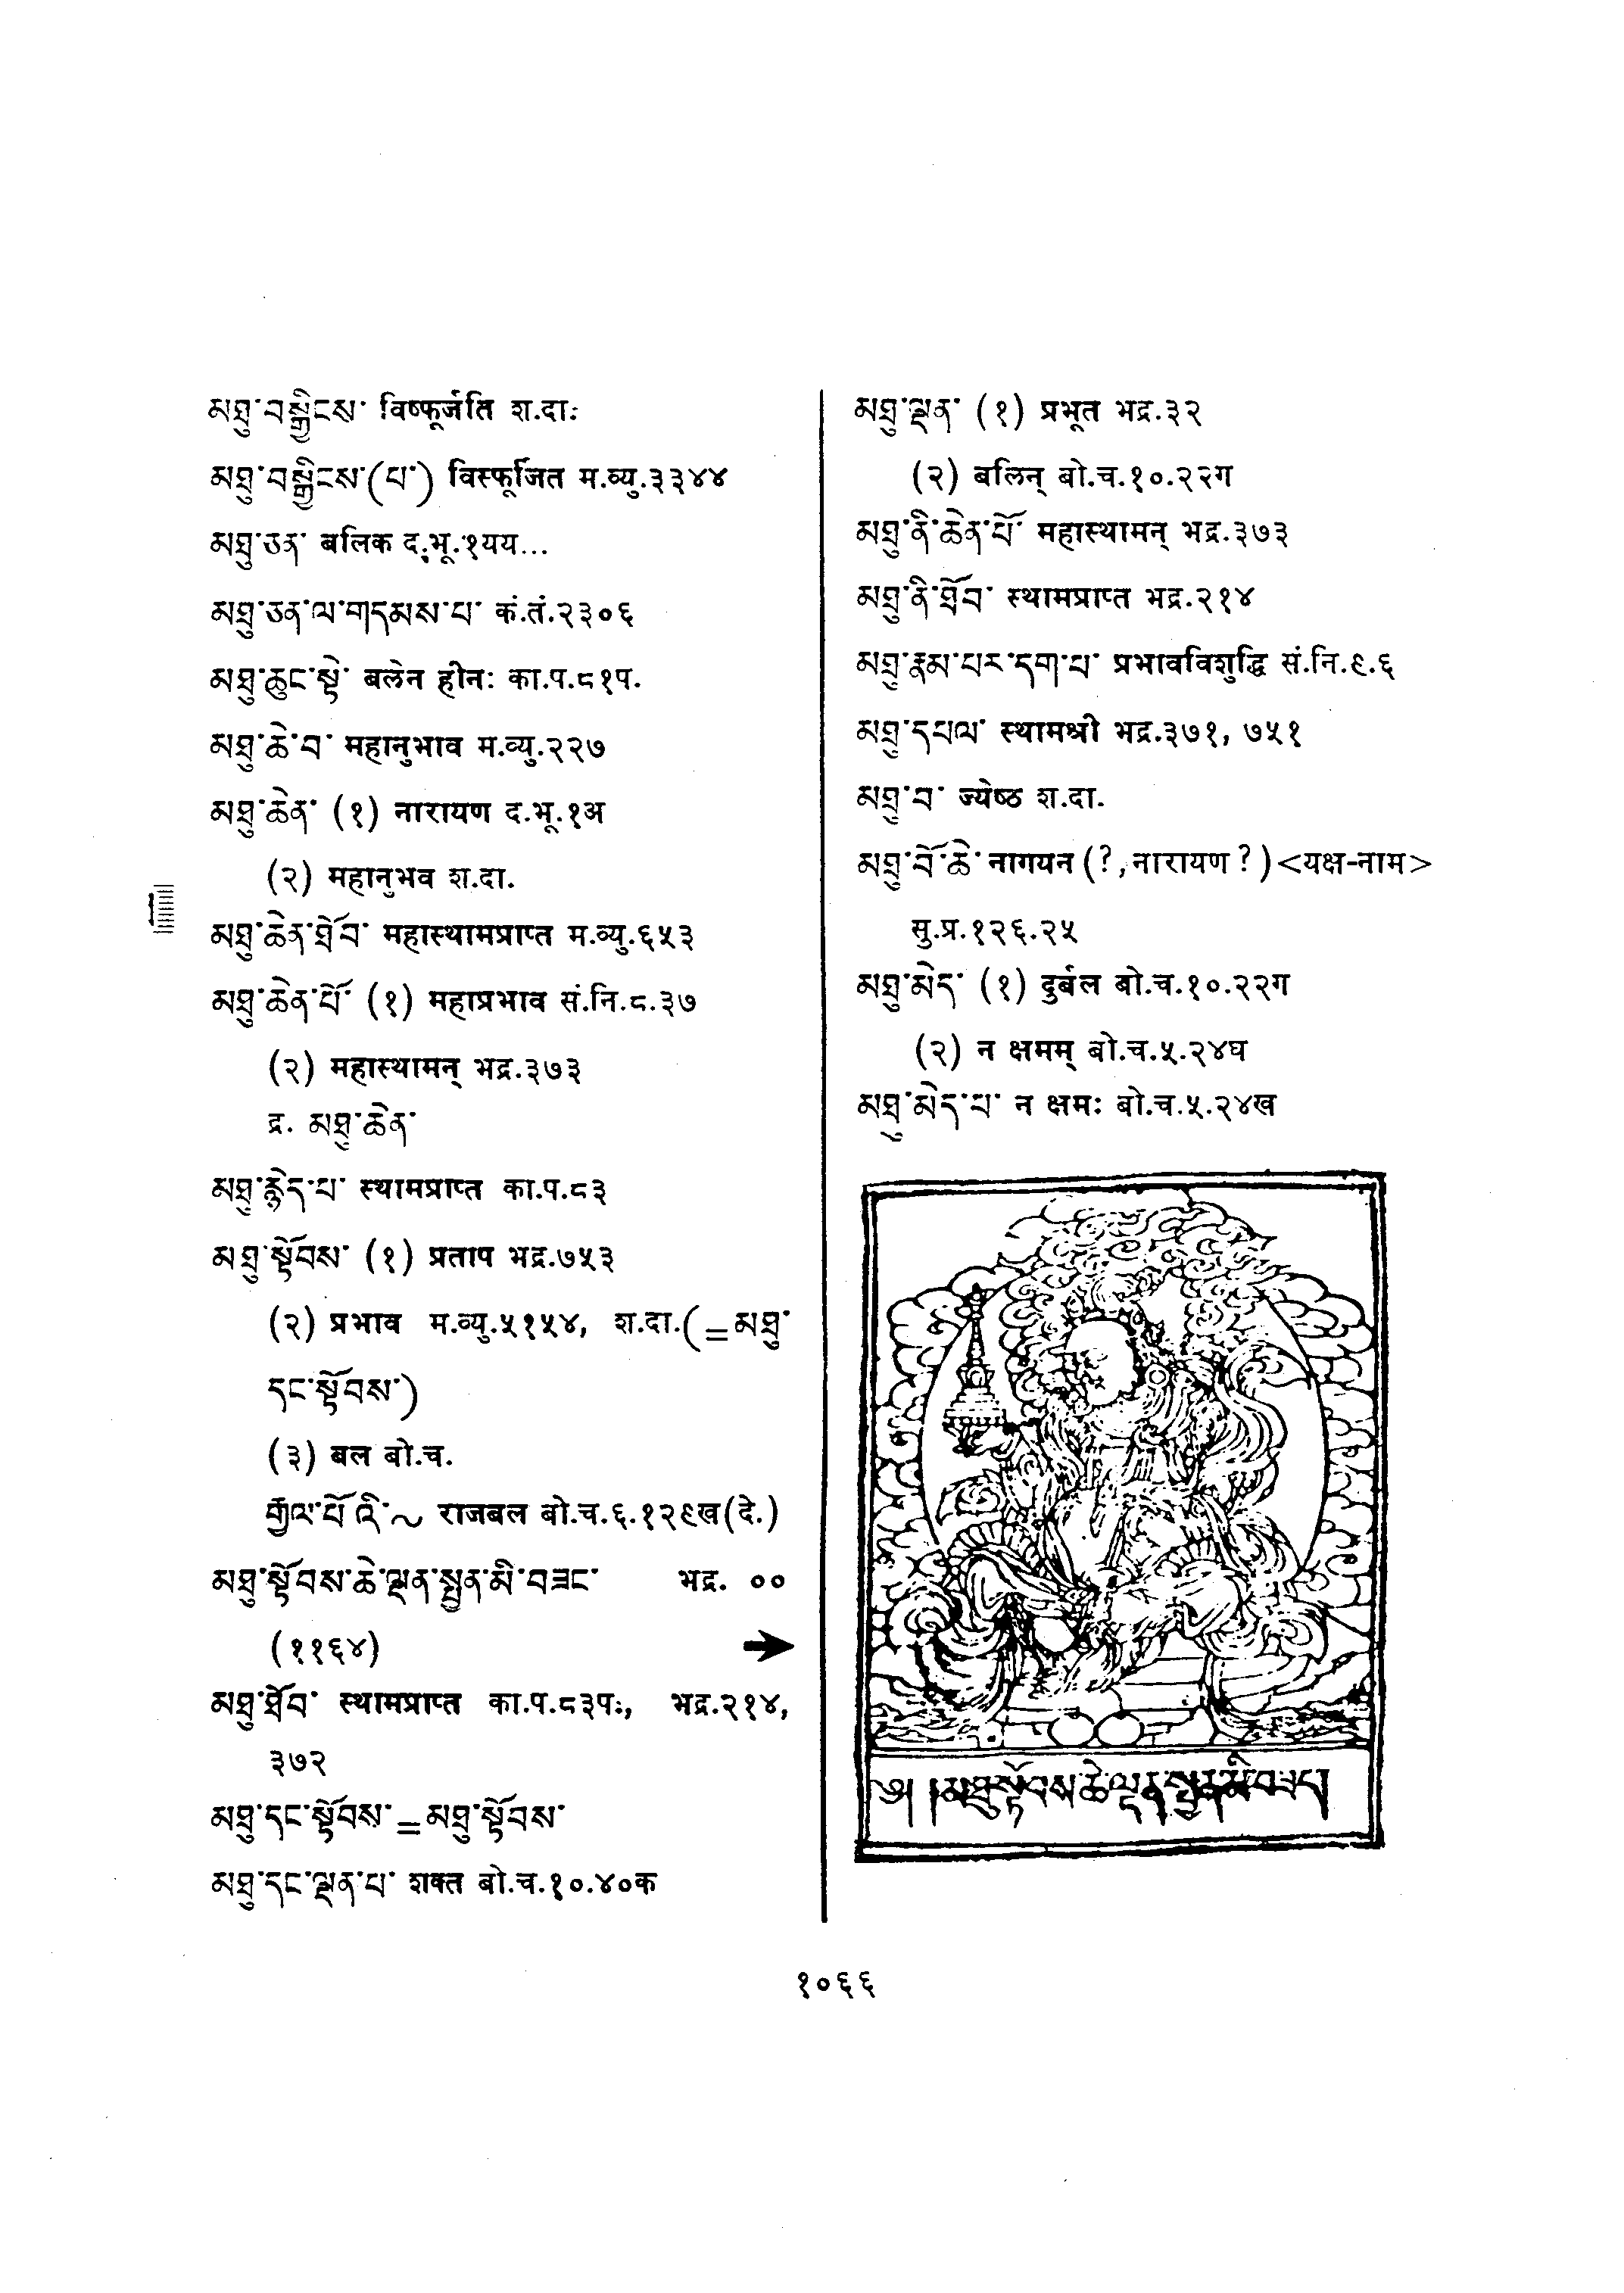 མཐུ་བསྒྱིངས་ विष्फूर्जति श.दाः
མཐུ་བསྒྱིངས་(པ་) विस्फूर्जित म.व्यु.३३४४
མཐུ་ཅན་ बलिक द.भू.१यय...
མཐུ་ཅན་ལ་གདམས་པ་ कं.तं.२३०६
མཐུ་ཆུང་སྟེ་ बलेन हीनः का.प.८१प.
མཐུ་ཆེ་བ་ महानुभाव म.व्यु.२२७
མཐུ་ཆེན་ (१) नारायण द.भू.१अ
(२) महानुभव श.दा.
མཐུ་ཆེན་ཐོབ་ महास्थामप्राप्त म.व्यु.६५३
མཐུ་ཆེན་པོ་ (१) महाप्रभाव सं.नि.८.३७
(२) महास्थामन् भद्र.३७३
द्र. མཐུ་ཆེན་
མཐུ་རྙེད་པ་ स्थामप्राप्त का.प.८३
མཐུ་སྟོབས་ (१) प्रताप भद्र.७५३
(२) प्रभाव म.व्यु.५१५४, श.दा.(=མཐུ་
དང་སྟོབས་)
(३) बल बो.च.
རྒྱལ་པོ་འི་~ राजबल बो.च.६.१२९ख(दे.)
མཐུ་སྟོབས་ཆེ་ལྡན་སྤྱན་མི་བཟང་ भद्र. ००
(११६४) ➔
མཐུ་ཐོབ་ स्थामप्राप्त का.प.८३पः, भद्र.२१४,
३७२
མཐུ་དང་སྟོབས་=མཐུ་སྟོབས་
མཐུ་དང་ལྡན་པ་ शक्त बो.च.१०.४०क
མཐུ་ལྡན་ (१) प्रभूत भद्र.३२
(२) बलिन् बो.च.१०.२२ग
མཐུ་ནི་ཆེན་པོ་ महास्थामन् भद्र.३७३
མཐུ་ནི་ཐོབ་ स्थामप्राप्त भद्र.२१४
མཐུ་རྣམ་པར་དག་པ་ प्रभावविशुद्धि सं.नि.९.६
མཐུ་དཔལ་ स्थामश्री भद्र.३७१, ७५१
མཐུ་བ་ ज्येष्ठ श.दा.
མཐུ་བོ་ཆེ་ नागयन (?,नारायण?)<यक्ष-नाम>
सु.प्र.१२६.२५
མཐུ་མེད་ (१) दुर्बल बो.च.१०.२२ग
(२) न क्षमम् बो.च.५.२४घ
མཐུ་མེད་པ་ न क्षमः बो.च.५.२४ख
༄། །མཐུ་སྟོབས་ཆེ་ལྡན་སྤྱན་མི་བཟང།
१०६६